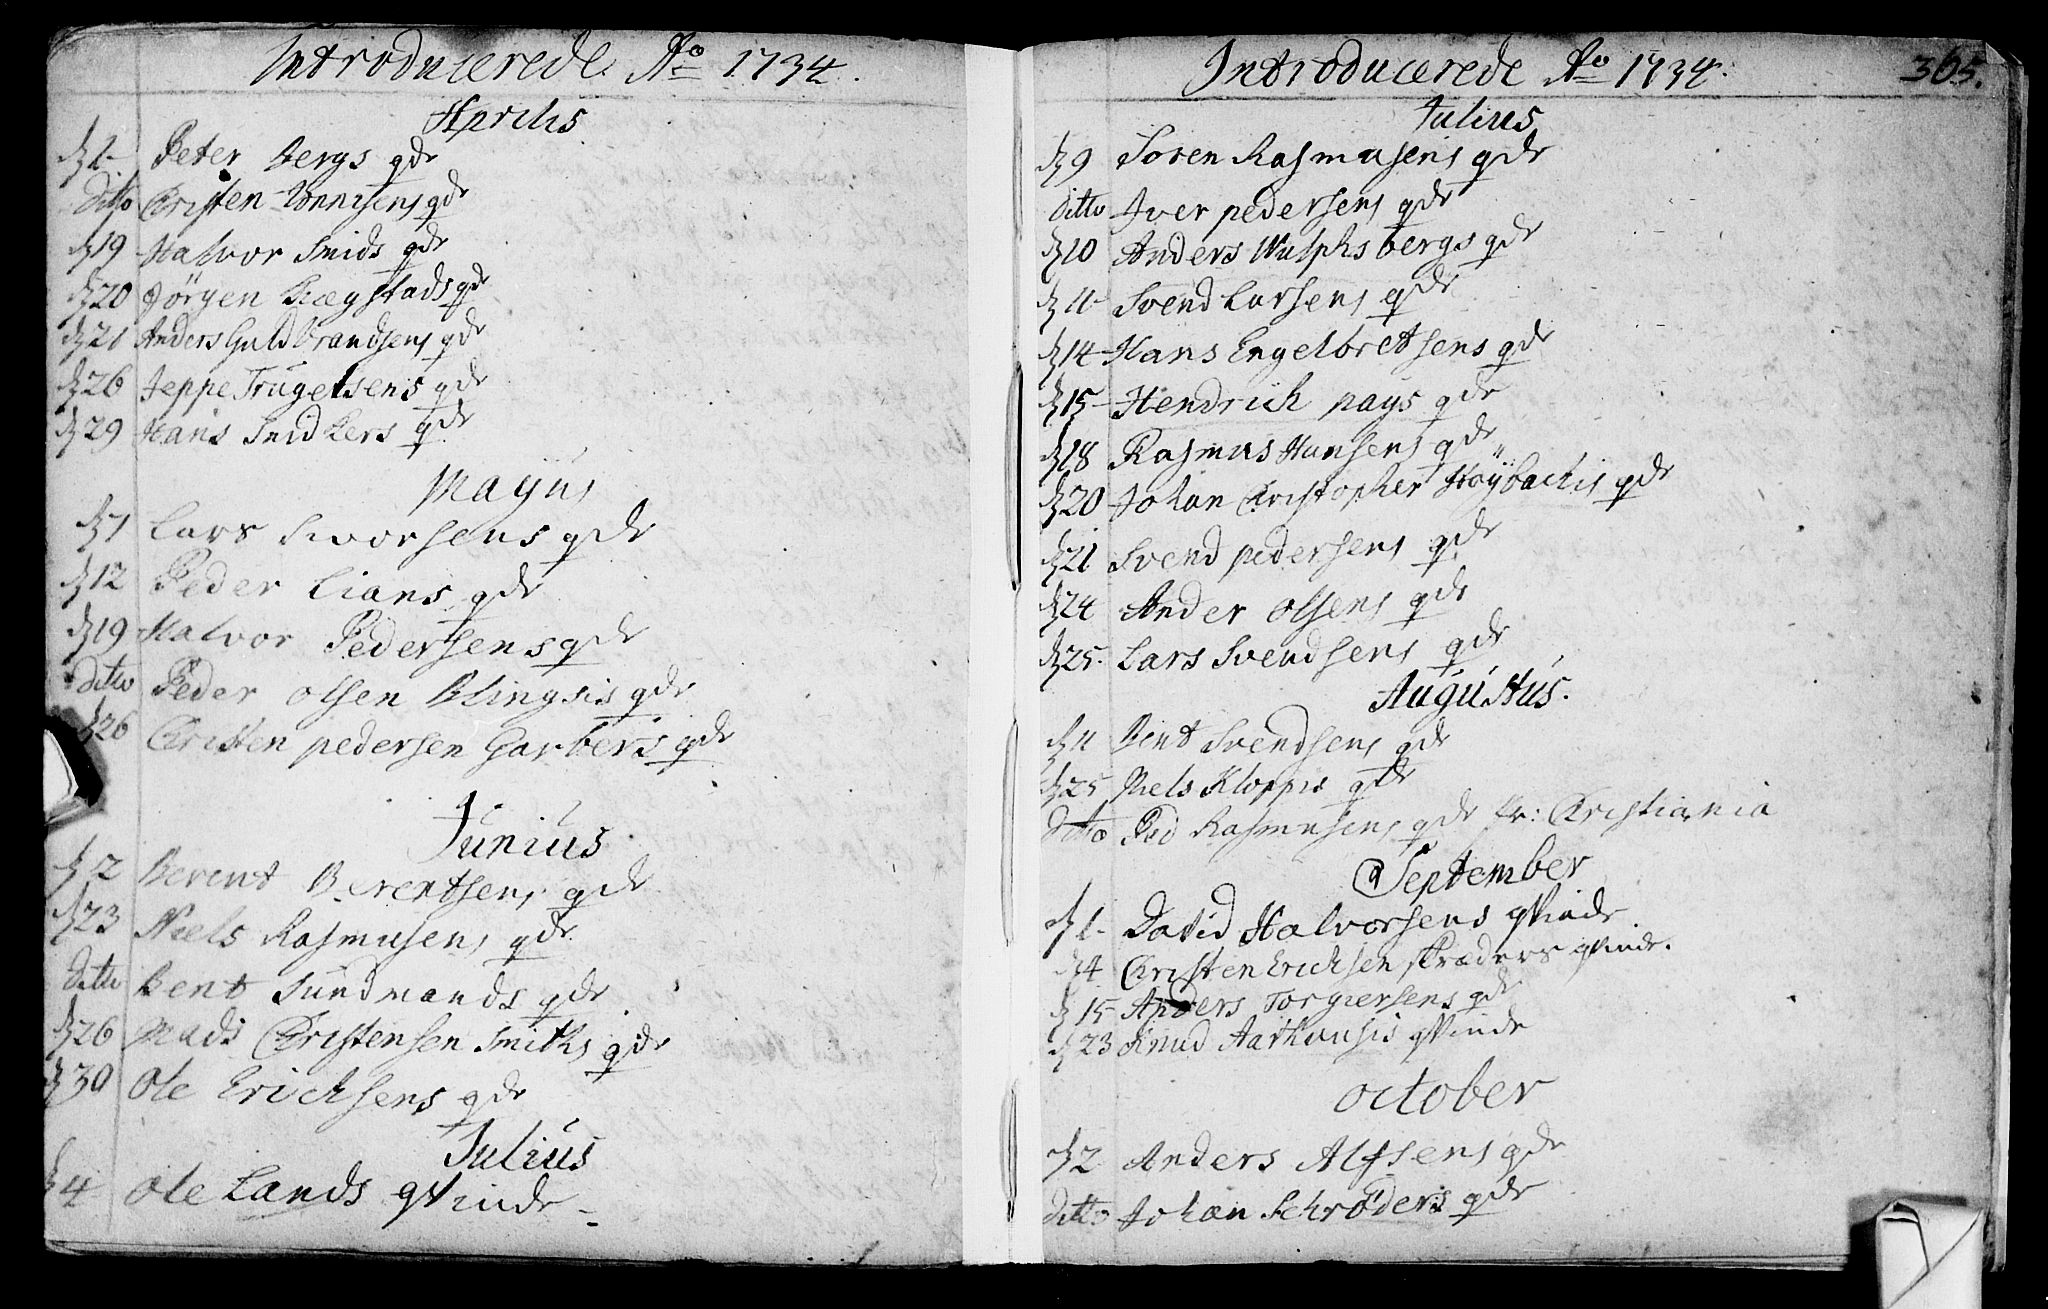 Introducerede Aº 1734.
Aprilis
d 1 Peter Bergs qde
ditto Christen Tønnisens qde
d 19 Halvor Smids qde
d 20 Jørgen Krægstads qde
d 21 Anders Guldbrandsens qde
d 26 Jeppe Trugelsens qde
d 29 Hans Snidkers qde
Majus
d 1 Lars Sworsens qde
d 12 Peder Lians qde
d 19 Halvor Pedersens qde
ditto Peder Olsen Blingsis qde
d 26 Christen pedersen Garbers qde
Junius
d 2 Berent Berentsens qde
d 23 Niels Rasmusens qde
ditto Bent Sundmands qde
d 26 Mads Christensen Smiths qde
d 30 Ole Ericksens qde
Julius
d 4 Ole Lands qvinde
Introducerede Aº 1734. 365.
Julius
d 9 Søren Rasmusens qde
ditto Iver pedersens qde
d 10 Anders Wulphsbergs qde
d 11 Svend Larsens qde
d 14 Hans Engelbretsens qde
d 15 Hendrich pays qde
d 18 Rasmus Hansens qde
d 20 Johan Christopher Høybachis qde
d 21 Svend pedersens qde
d 24 Ander Olsens qde
d 25. Lars Svendsens qde
Augustus.
d 11 Bent Svendsens qde
d 25 Niels Kloppis qde
ditto Ped Rasmusens qde fr: Christiania
September
d 1 David Halvorsens qvinde
d 4 Christen Ericksen skræders qvinde.
d 15 Anders Torgiersens qde
d 23 Knud Aarhusis qvinde
October
d 2 Anders Alfsens qde
ditto Johan Schrøders qde